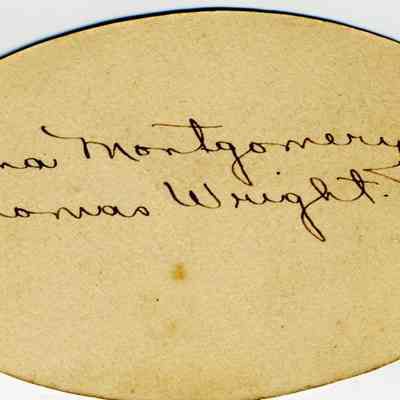 na Montgomery
homas Wright.